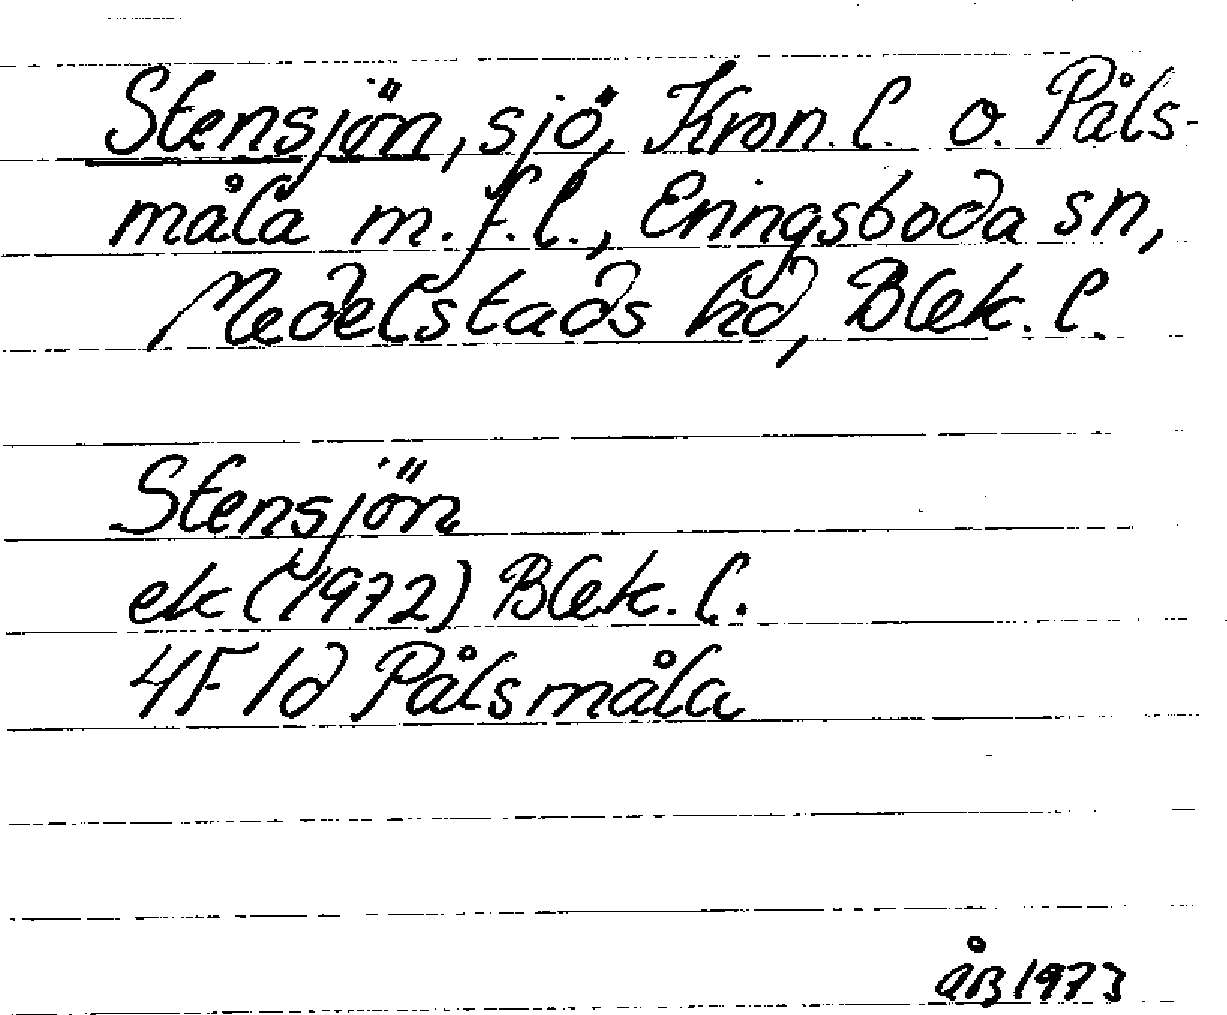 Stensjön, sjö, Kron. l. o. Påls-
måla m.fl., Eringsboda sn,
Medelstads hd, Blek. l.
Stensjön
ek (1972) Blek. l.
4F 1d Pålsmåla
åB 1973